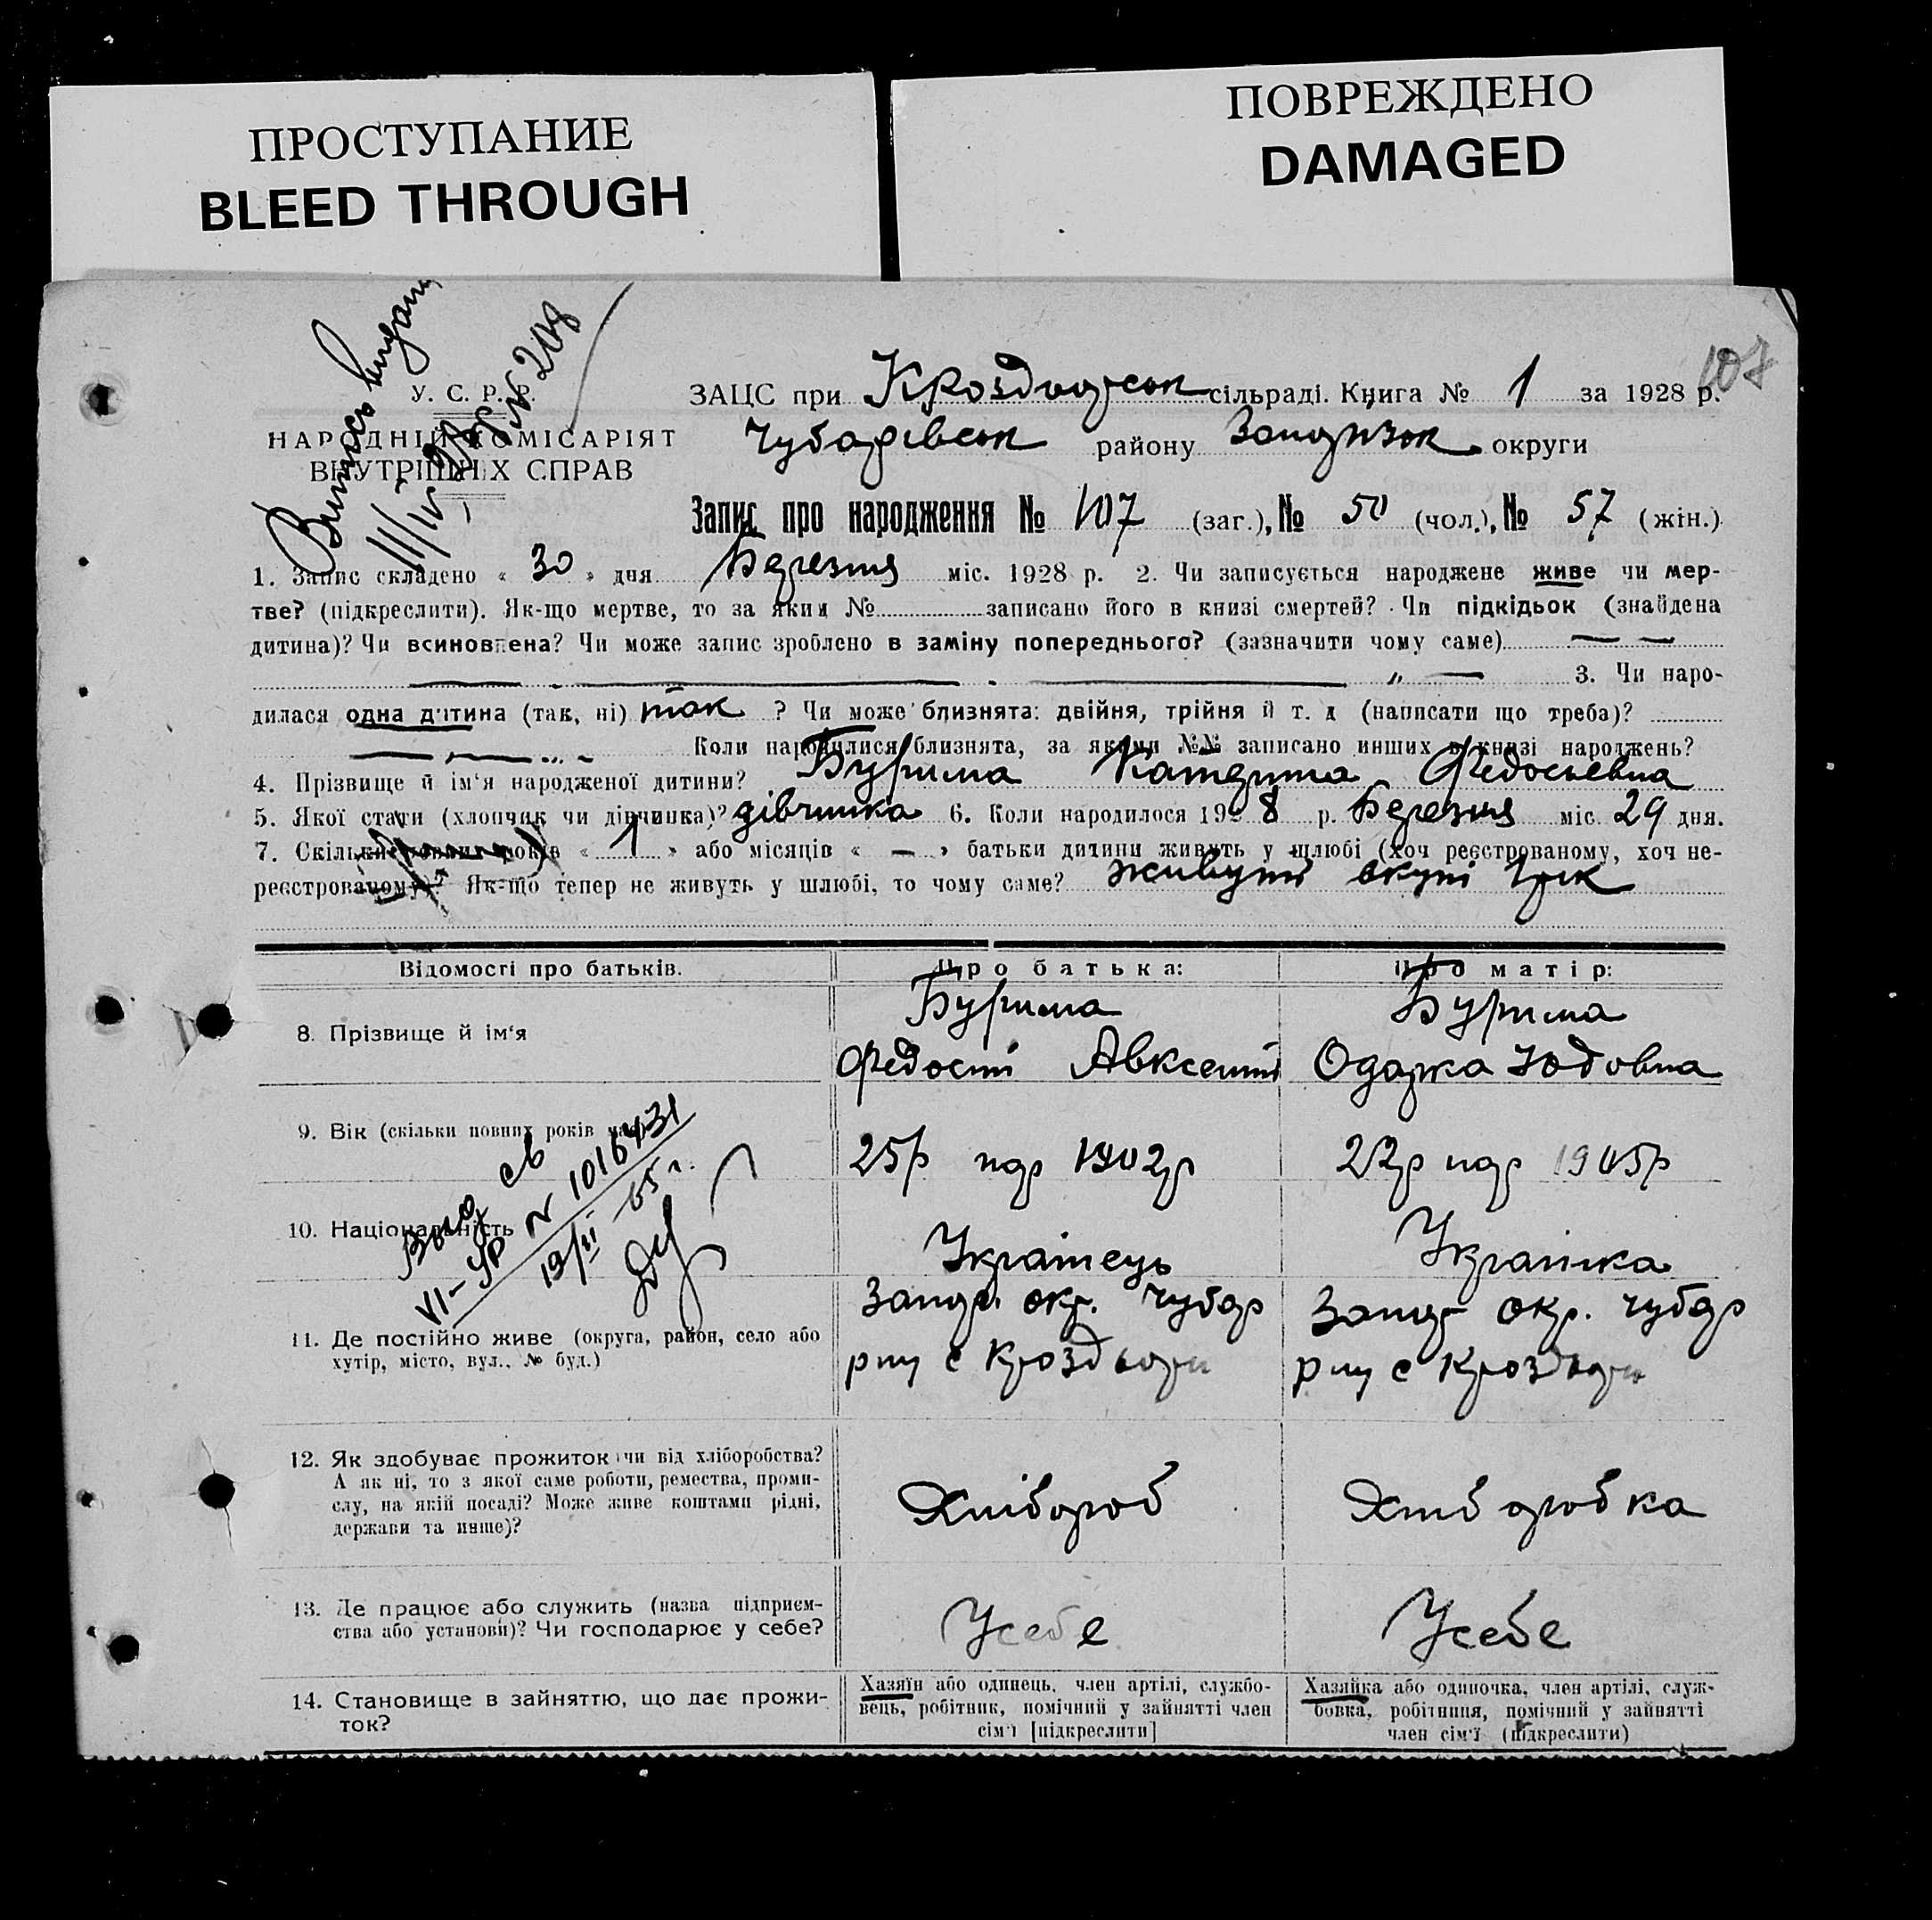 ПРОСТУПАНИЕ
BLEED THROUGH
ПОВРЕЖДЕНО
DAMAGED
107
У. С. Р. Р.
НАРОДНІЙ КОМІСАРІЯТ
ВНУТРІШНІХ СПРАВ
ЗАЦС при сільраді. Книга № 1 за 1928 р.
Чубарівськ району округи
Запис про народження № 107 (заг.), № 50 (чол.), № 57 (жін.)
1. Запис складено « 30 » дня Березня міс. 1928 р. 2. Чи записується народжене живе чи мер-
тве? (підкреслити). Як-що мертве, то за яким № записано його в книзі смертей? Чи підкідьок (знайдена
дитина)? Чи всиновлена? Чи може запис зроблено в заміну попереднього? (зазначити чому саме) — —
3. Чи наро-
дилася одна дитина (так, ні) так ? Чи може близнята: двійня, трійня й т. д (написати що треба)?
Коли народилися близнята, за якими №№ записано инших в книзі народжень?
4. Прізвище й ім'я народженої дитини? Бурима Катерина Федосьевна
5. Якої стати (хлопчик чи дівчинка)? дівчинка 6. Коли народилося 192 8 р. Березня міс. 29 дня.
7. Скільки повних років « 1 » або місяців « — » батьки дитини живуть у шлюбі (хоч реєстрованому, хоч не-
реєстрованому)? Як-що тепер не живуть у шлюбі, то чому саме? живуть вкупі 1 рік
Відомості про батьків. Про батька: Про матір:
8. Прізвище й ім'я
Бурима
Федосій Авксентій
Бурима
Одарка Юдовна
9. Вік (скільки повних років має)
25р нар 1902р
22р нар 1905р
VI-ЯР № 1016431
19/II 65 г.
10. Національність
Українець
Українка
11. Де постійно живе (округа, район, село або
хутір, місто, вул., № буд.)
Запор. окр. Чубар
рну с
Запор окр. Чубар
рну с
12. Як здобуває прожиток чи від хліборобства?
А як ні, то з якої саме роботи, ремества, проми-
слу, на якій посаді? Може живе коштами рідні,
держави та инше)?
Хлібороб
Хліборобка
13. Де працює або служить (назва підприєм-
ства або установи)? Чи господарює у себе?
Усебе
Усебе
14. Становище в зайняттю, що дає прожи-
ток?
Хазяїн або одинець, член артілі, службо-
вець, робітник, помічний у зайнятті член
сім'ї [підкреслити]
Хазяйка або одиночка, член артілі, служ-
бовка, робітниця, помічний у зайнятті
член сім'ї (підкреслити)